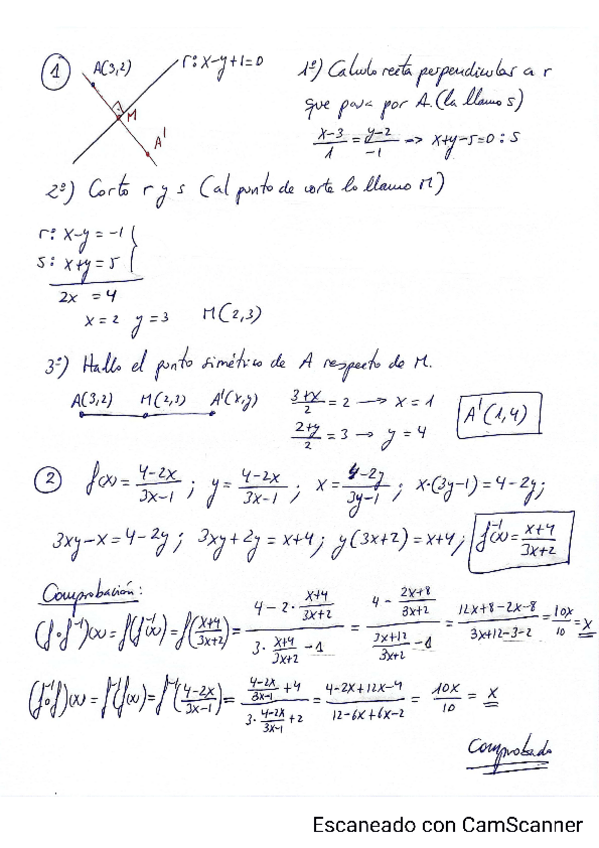 ① A(3,2) r: x-y+1=0 1º) Calculo recta perpendicular a r
que pasa por A. (la llamo s)
M
A'
(x-3)/1 = (y-2)/-1 => x+y-5=0 : s
2º) Corto r y s (al punto de corte lo llamo M)
r: x-y = -1
s: x+y = 5
2x = 4
x = 2 y = 3 M(2,3)
3º) Hallo el punto simétrico de A respecto de M.
A(3,2) M(2,3) A'(x,y) (3+x)/2 = 2 → x = 1
(2+y)/2 = 3 → y = 4 A'(1,4)
② f(x) = (4-2x)/(3x-1) ; y = (4-2x)/(3x-1) ; x = (4-2y)/(3y-1) ; x·(3y-1) = 4-2y ;
3xy-x = 4-2y ; 3xy+2y = x+4 ; y(3x+2) = x+4 ; f⁻¹(x) = (x+4)/(3x+2)
Comprobación:
(f∘f⁻¹)(x) = f(f⁻¹(x)) = f((x+4)/(3x+2)) = (4-2·(x+4)/(3x+2))/(3·(x+4)/(3x+2)-1) = (4-(2x+8)/(3x+2))/((3x+12)/(3x+2)-1) = (12x+8-2x-8)/(3x+12-3-2) = 10x/10 = x
(f⁻¹∘f)(x) = f⁻¹(f(x)) = f⁻¹((4-2x)/(3x-1)) = ((4-2x)/(3x-1)+4)/(3·(4-2x)/(3x-1)+2) = (4-2x+12x-4)/(12-6x+6x-2) = 10x/10 = x
Comprobado
Escaneado con CamScanner